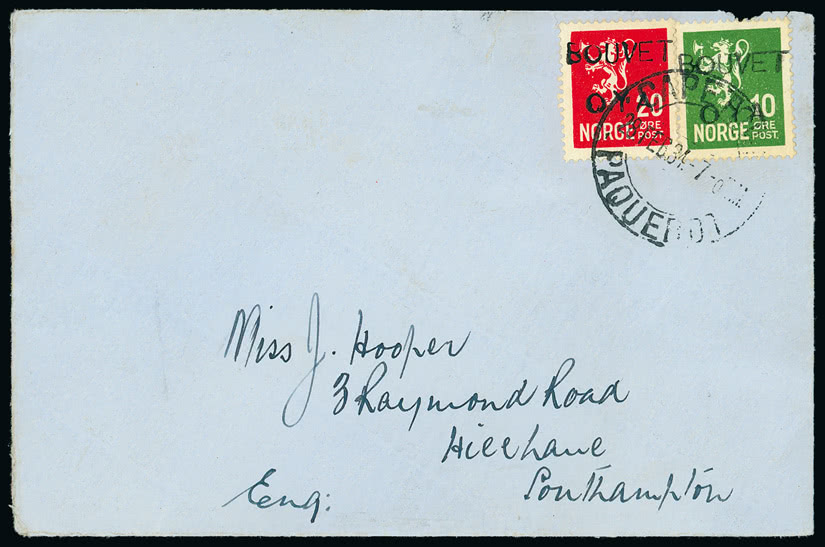 BOUVET
ØYA
20
NORGE ØRE
POST.
BOUVET
ØYA
10
NORGE ØRE
POST.
FEB.34
PAQUEBOT
Miss J. Hooper
3 Raymond Road
Hill Lane
Southampton
Eng: